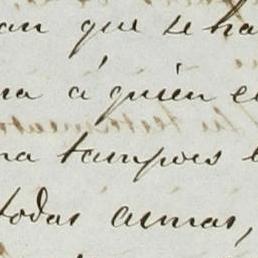 an que se ha
na á quien e
na tampoco e
todas armas,